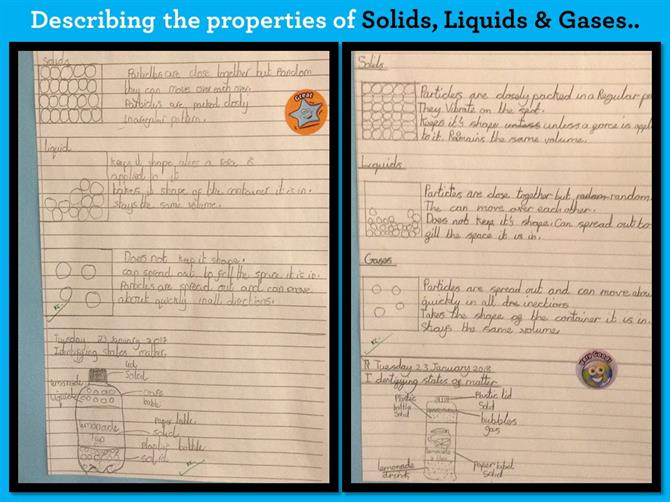 Describing the properties of Solids, Liquids & Gases..
Solids
Particles are close together but Random
they can move over each over.
Particles are, packed closly
in a regular pattern.
Great
liquid
Keeps it shape
applied to it
takes it shape of the container it is in.
stays the same volume.
Does not keep it shape.
can spread out to fill the space it is in.
Particles are spread out and can move
about quickly in all directions.
Tuesday 23 January
Identifying states matter
lid
Solid
lemonade
liquid
bubble
lemonade
7up
Paper lable
solid
Plastic bottle
solid
Solids
Particles are closely packed in a Regular
They Vibrate on the spot.
Keeps it's shape unless a force is
to it. Remains the same volume.
Liquids
Particles are close together but random
The can move over each other.
Does not keep it's shape. Can spread out to
fill the space it is in.
Gases
Particles are spread out and can move
quickly in all directions
Takes the shape of the container it is in.
Stays the same volume
Tuesday 23 January 2018
Identifying states of matter
Plastic bottle Solid
Plastic lid
Solid
bubbles
gas
lemonade
Paper label
Solid